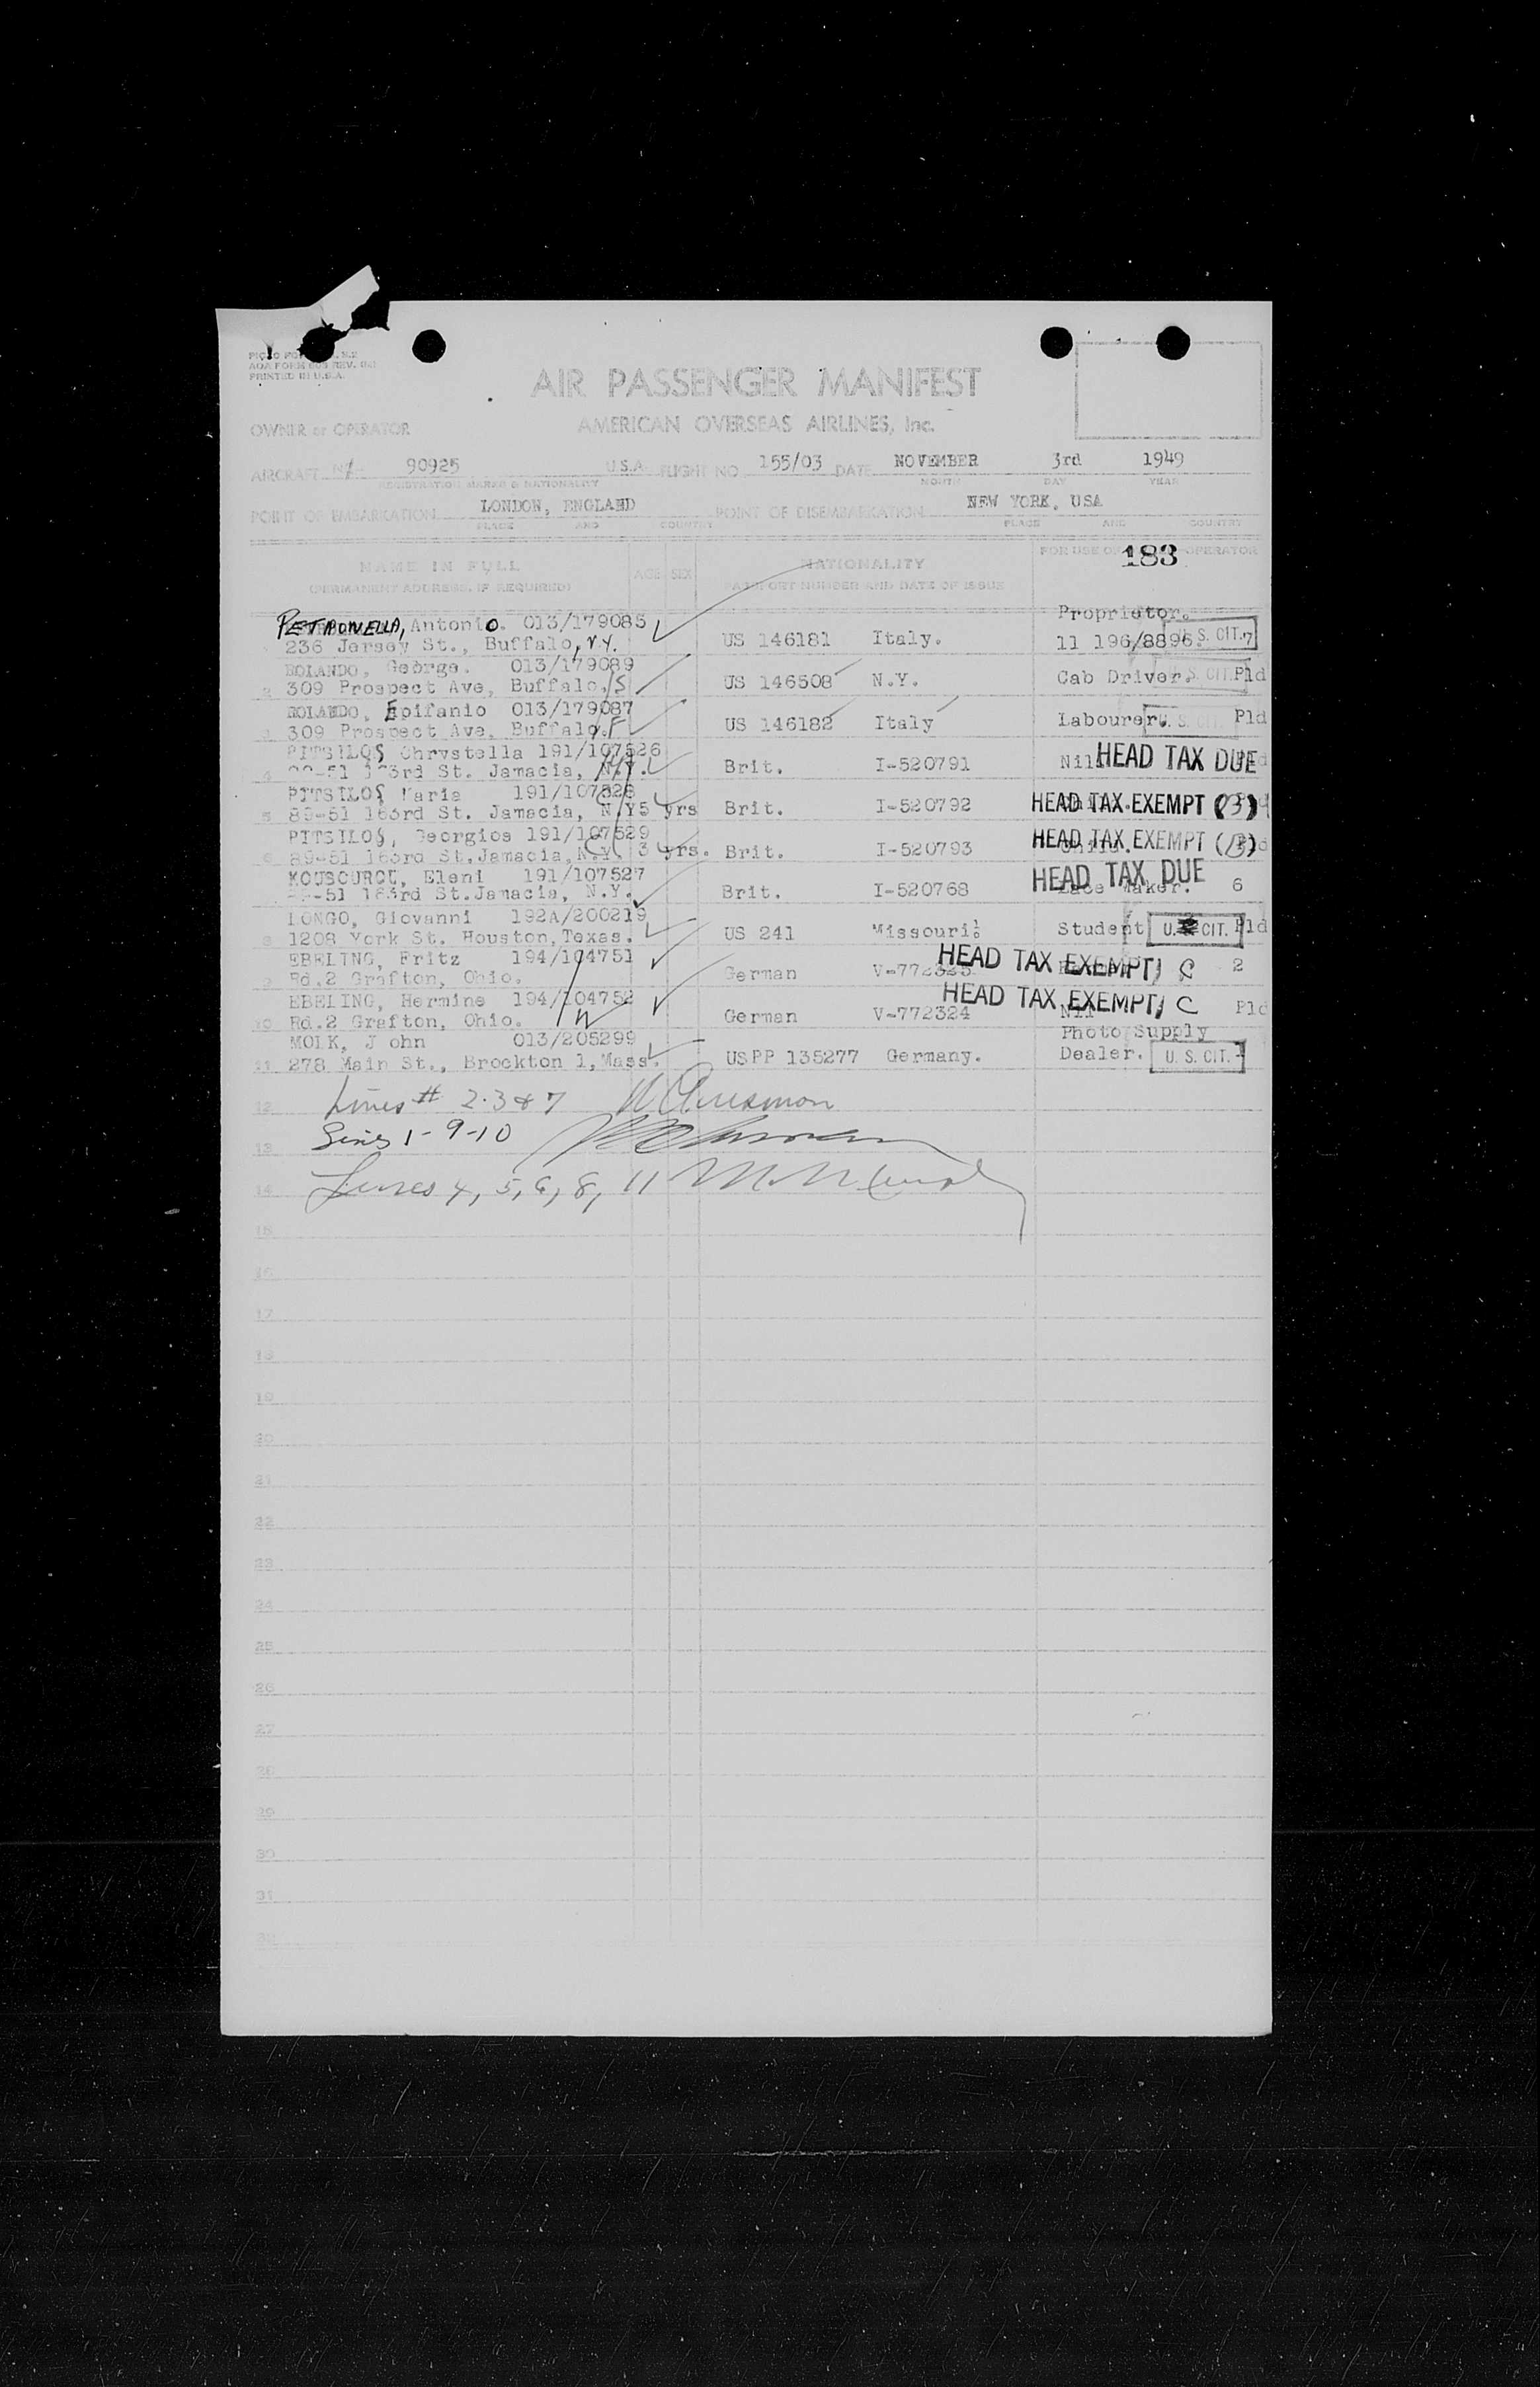 AOA FORM 603 REV.
PRINTED IN U.S.A.
AIR PASSENGER MANIFEST
OWNER or OPERATOR AMERICAN OVERSEAS AIRLINES, Inc.
AIRCRAFT 90925 U.S.A. FLIGHT NO. 155/03 DATE NOVEMBER 3rd 1949
REGISTRATION MARKS & NATIONALITY MONTH DAY YEAR
POINT OF EMBARKATION LONDON, ENGLAND POINT OF DISEMBARKATION NEW YORK, USA
PLACE AND COUNTRY PLACE AND COUNTRY
NAME IN FULL AGE SEX NATIONALITY FOR USE OF OPERATOR
183
(PERMANENT ADDRESS, IF REQUIRED) PASSPORT NUMBER AND DATE OF ISSUE
PETRONELLA, Antonio. 013/179085 Proprietor.
236 Jersey St., Buffalo, N.Y. US 146181 Italy. 11 196/8896. U.S. CIT. 7
ROLANDO, George. 013/179089
2 309 Prospect Ave, Buffalo. S US 146508 N.Y. Cab Driver. U.S. CIT. Pld
ROLANDO, Epifanio 013/179087
3 309 Prospect Ave, Buffalo. F US 146182 Italy Labourer. U.S. CIT. Pld
PITSILOS Chrystella 191/107526
4 -51 163rd St. Jamacia, N.Y. Brit. I-520791 Nil HEAD TAX DUE
PITSILOS Maria 191/107528
5 89-51 163rd St. Jamacia, N.Y 5 yrs Brit. I-520792 HEAD TAX EXEMPT (3)
PITSILOS, Georgios 191/107529
6 89-51 163rd St. Jamacia, N.Y. 3 yrs. Brit. I-520793 HEAD TAX EXEMPT (13)
KOUSOUROU, Eleni 191/107527
-51 163rd St. Jamacia, N.Y. Brit. I-520768 Lace Maker. 6 HEAD TAX DUE
LONGO, Giovanni 192A/200219
8 1208 York St. Houston, Texas. US 241 Missouri Student U.S. CIT. Pld
EBELING, Fritz 194/104751
9 Rd.2 Grafton, Ohio. German V-772325 HEAD TAX EXEMPT C 2
EBELING, Hermine 194/104752
10 Rd.2 Grafton, Ohio. German V-772324 Nil HEAD TAX EXEMPT C Pld
MOLK, J ohn 013/205299 Photo Supply
11 278 Main St., Brockton 1, Mass. USPP 135277 Germany. Dealer. U. S. CIT. 1
12 Lines # 2.3 & 7
13 Lines 1-9-10
14 Lines 4, 5, 6, 8, 11
15
16
17
18
19
20
21
22
23
24
25
26
27
28
29
30
31
32